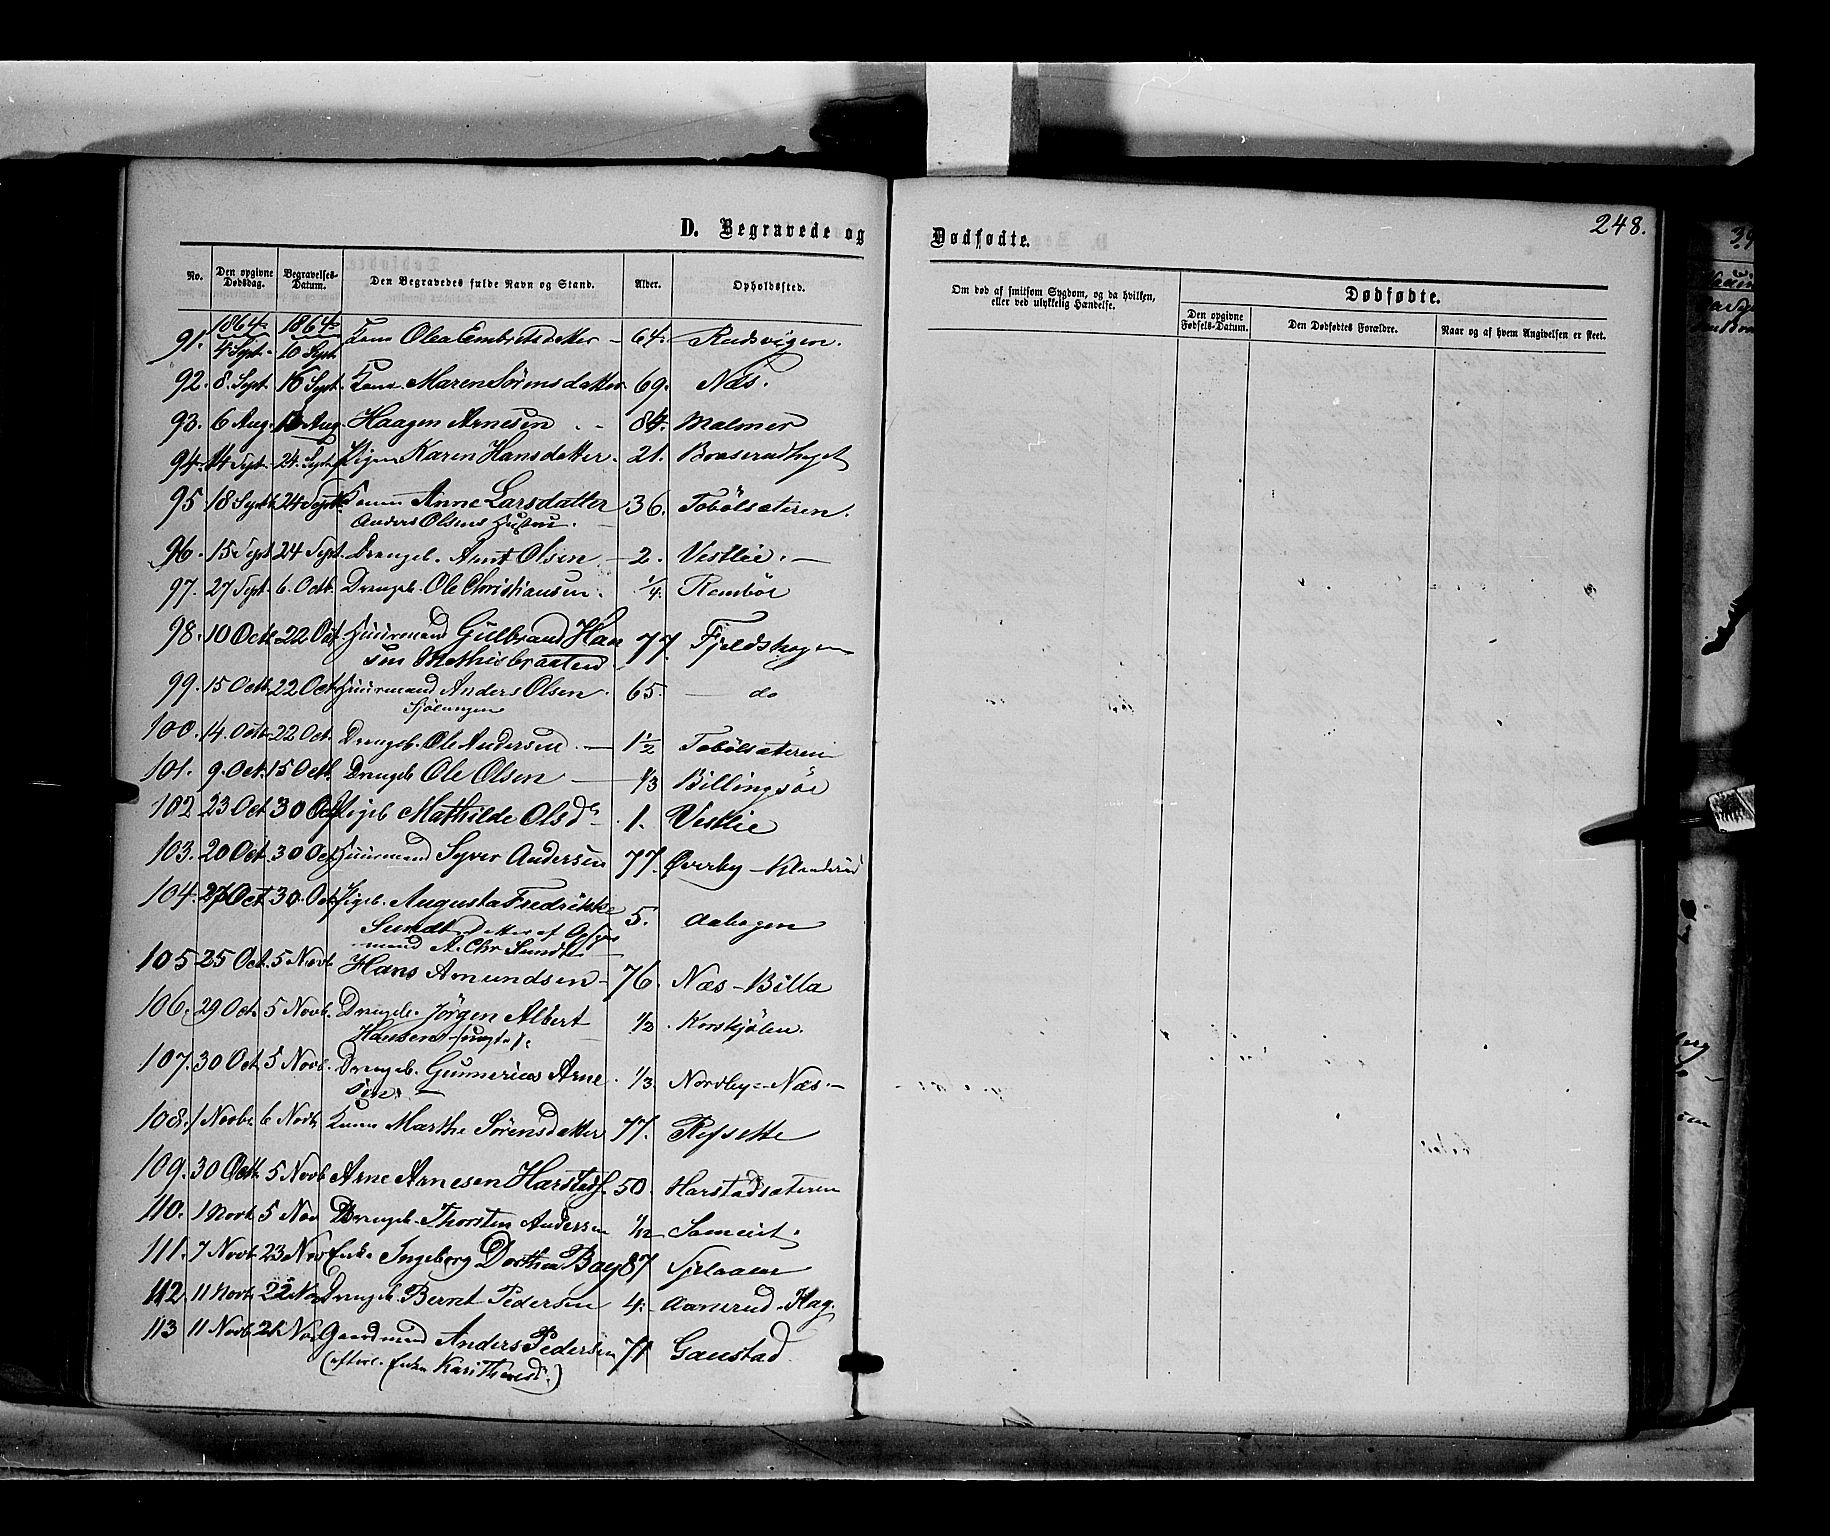 D. Begravede og
Dødfødte.
248.
No. Den opgivne Dødsdag. Begravelses-Datum. Den Begravedes fulde Navn og Stand. Alder. Opholdssted.
Om død af smitsom Sygdom, og da hvilken, eller ved ulykkelig Hændelse.
Dødfødte.
Den opgivne Fødsels-Datum. Den Dødfødtes Forældre. Naar og af hvem Angivelsen er skeet.
1864 1864
91. 4 Sept. 10 Sept. Kone Olea Embretsdatter - 64.
92. 8. Sept. 16 Sept. Kone Maren Sörensdatter 69. Næs.
93. 6 Aug. Aug. Haagen Arnesen 84. Malmer
94. 14 Sept. 24. Sept. Pigen Karen Hansdatter. 21.
95 18 Septb 24 Septb. Anne Larsdatter 36. Tobölsæteren.
Anders Olsens Hustru.
96. 15 Sept 24 Sept. Drengeb. Arnt Olsen - 2. Vestlie. -
97. 27 Sept. 6. Octb. Drengeb. Ole Christiansen. 1/4.
98. 10 Octb 22 Oct. Huusmand Gulbrand Han
sen Mathisbraaten 77. Fjeldskogen
99. 15 Octb. 22 Oct. Huusmand Anders Olsen. 65. - do
100. 14. Octb. 22 Oct. Drengeb. Ole Andersen. - 1 1/2 Tobölsæteren
101. 9. Oct. 15 Octb. Drengeb Ole Olsen - 1/3
102 23 Oct 30 Oct Pigeb Mathilde Olsd - 1. Vestlie
103. 20 Oct. 30 Oct. Huusmand Syver Andersen 77. Øverby -
104. 27 Oct 30 Oct Pigeb. Augusta Fredrikke
Sundt, datter af
mand A. Chr Sundt 5. Aabogen
105 25 Oct. 5 Novb Hans Amundsen - 76. Næs - Billa
106. 29 Oct. 5 Novb. Drengeb. Jörgen Albert
Hansen 1/2.
107. 30 Oct. 5 Novb. Drengeb. Gunnerius Arne
sen. - 1/3 Nordby - Næs. -
108. 1 Novbr 6 Novb. Kone Marthe Sörensdatter 77.
109. 30 Octb. 5 Novb. Arne Arnesen Harstads. 50. Harstadsæteren
110. 1 Novb. 5 Nov Drengeb. Thorsten Andersen 1/12
111. 7 Novb. 23 Nov Enke Ingeborg Dorthea Bay 87
112. 11 Novb. 22 Nov Drengeb. Bernt Pedersen 4.
113 11 Novb. Nov Gaardmand Anders Pedersen 71 Gaustad.
(efterl. Enke Kari)